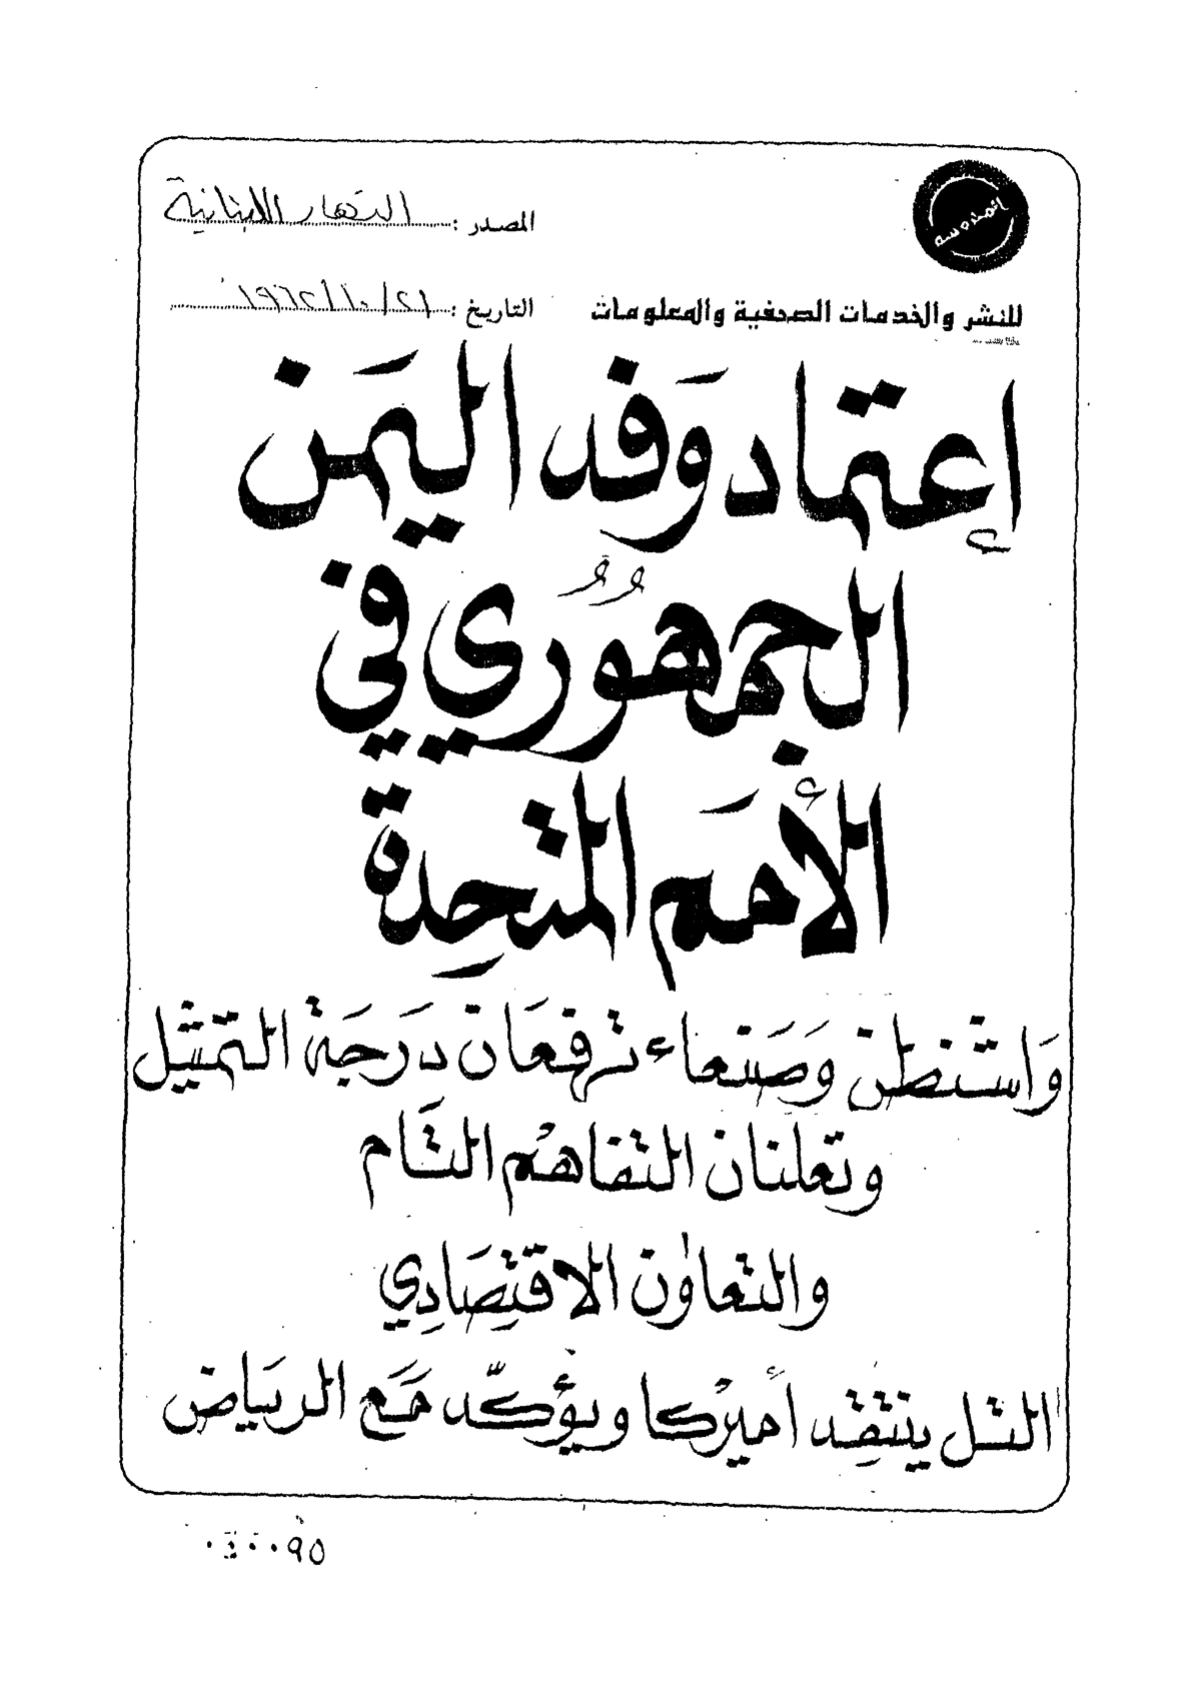 المصدر: النهار اللبنانية
المحروسة
للنشر والخدمات الصحفية والمعلومات
التاريخ: ٢١/١٠/١٩٦٢
إعتماد وَفد اليمَن
الجمهُوري في
الأمَم المتحِدة
وَاشنطن وَصَنعاء ترفعَان دَرَجَة التمثيل
وتعلنان التفاهم التَام
والتعاون الاقتِصَادِي
التل ينتقِد أميركا ويؤكّد مَع الريَاض